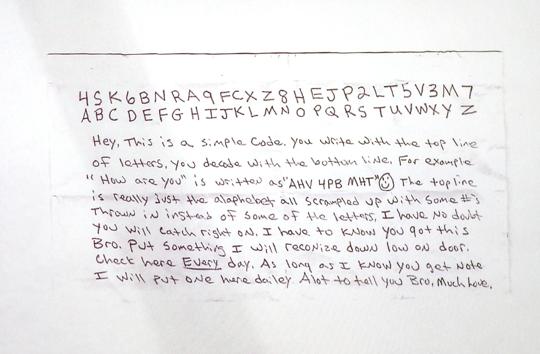 4SK6BNRA9FCXZ8HEJP2LT5V3M7
ABCDEFGHIJKLMNOPQRSTUVWXYZ
Hey, This is a simple code. you write with the top line
of letters, you decode with the bottom line. For example
"How are you" is written as "AHV 4PB MHT" The top line
is really just the alaphebet all scrampled up with some #'s
thrown in instead of some of the letters, I have no doubt
you will catch right on. I have to know you got this
Bro. Put something I will reconize down low on door.
Check here Every day. As long as I know you get note
I will put one here dailey Alot to tell you Bro, Much Love,